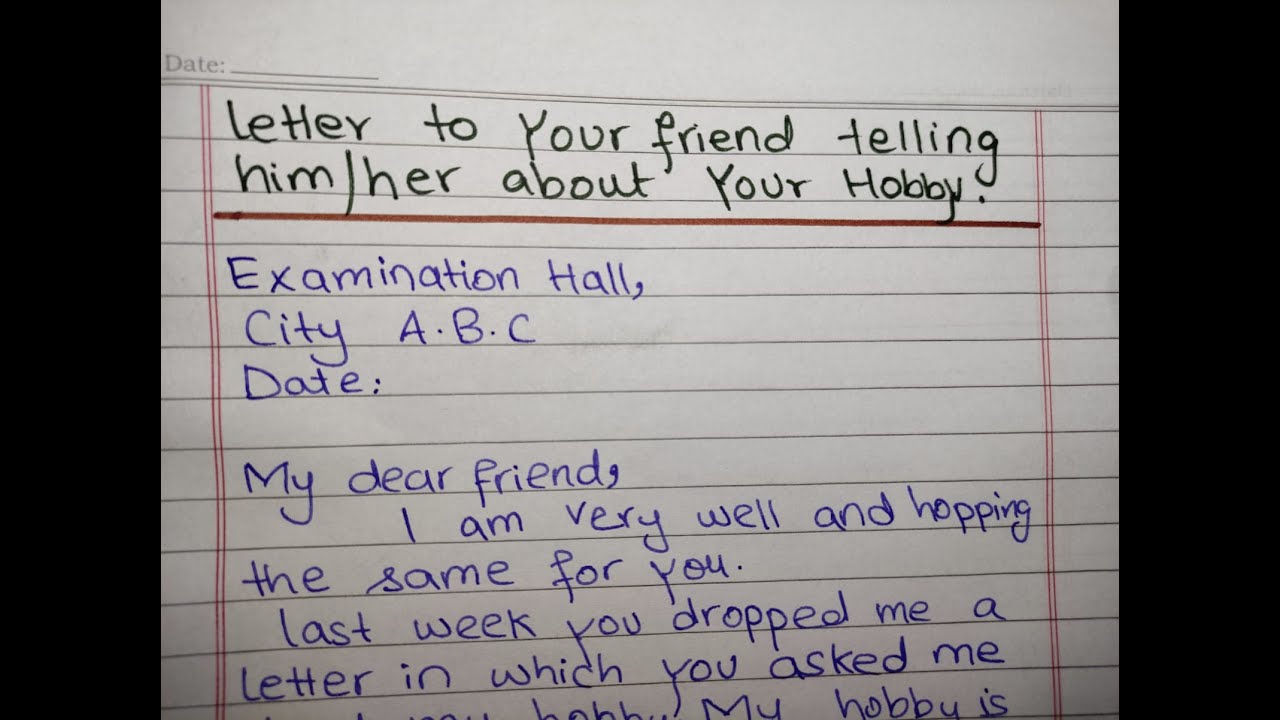 Date:
Letter to Your friend telling
him/her about Your Hobby.
Examination Hall,
City A.B.C
Date:
My dear friend,
I am very well and hopping
the same for you.
last week you dropped me a
letter in which you asked me
my hobby. My hobby is